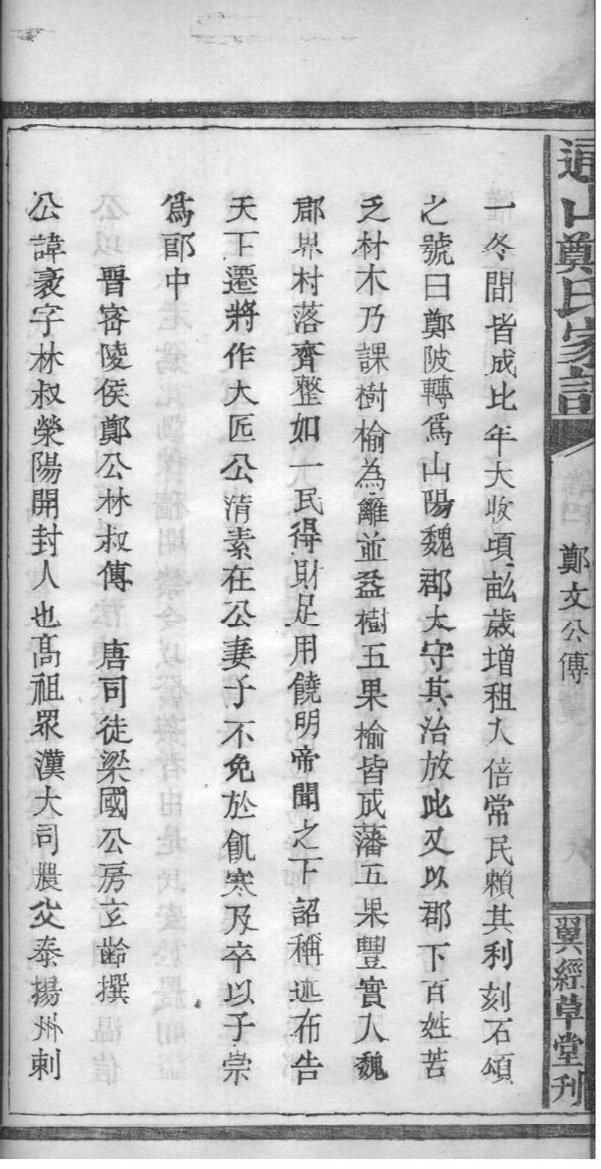 通山鄭氏家譜
鄭文公傳
翼經草堂刊
一冬間皆成比年大收頃畝歲增租入倍常民賴其利刻石頌
之號曰鄭陂轉爲山陽魏郡太守其治放此又以郡下百姓苦
乏材木乃課樹榆為籬並益樹五果榆皆成藩五果豐實入魏
郡界村落齊整如一民得財足用饒明帝聞之下詔稱述布告
天下遷將作大匠公清素在公妻子不免於飢寒及卒以子崇
爲郎中
晋密陵侯鄭公林叔傳 唐司徒梁國公房玄齡撰
公諱袤字林叔滎陽開封人也高祖眾漢大司農父泰揚州刺